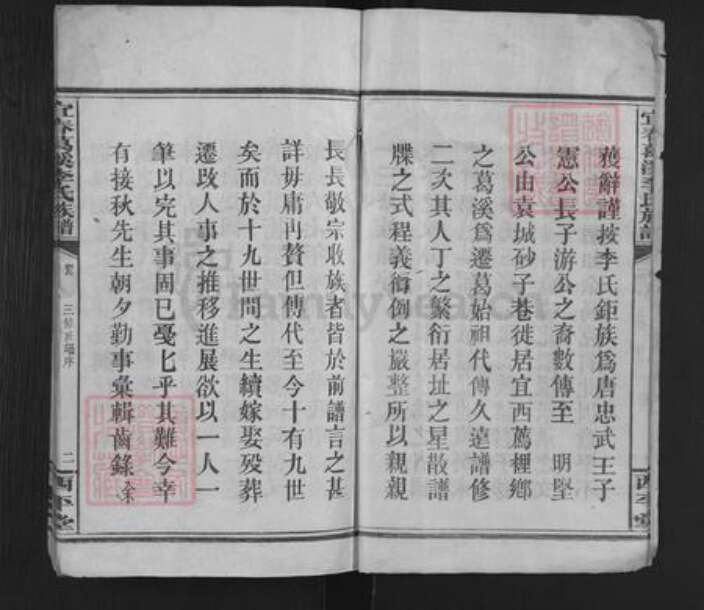 宜春葛溪李氏族譜
西平堂
獲辭謹按李氏鉅族爲唐忠武王子
憲公長子游公之裔數傳至 明堅
公由袁城砂子巷徙居宜西蔫梩鄉
之葛溪爲遷葛始祖代傳久遠譜修
二次其人丁之繁衍居址之星散譜
牒之式程義衜倒之嚴整所以親親
長長敬宗收族者皆於前譜言之甚
詳毋庸再贅但傳代至今十有九世
矣而於十九世間之生續嫁娶殁葬
遷改人事之推移進展欲以一人一
筆以完其事固已戞乜乎其難今幸
有接秋先生朝夕勤事彙輯齒錄 余
宜春葛溪李氏族譜
三修族譜序
二
西平堂
FamilySearch